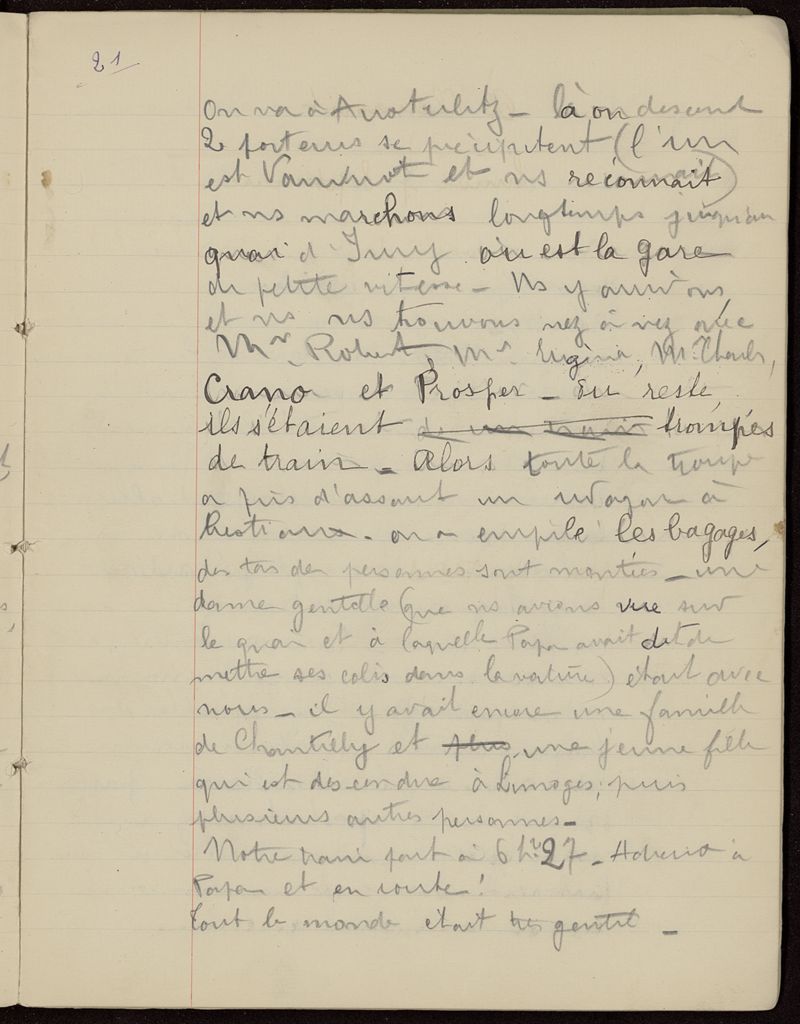 21
On va à Austerlitz – là on descend
2 porteurs se précipitent (l'un
est et ns reconnait)
et ns marchons longtemps jusqu'au
quai d'Ivry où est la gare
de petite vitesse – Ns y arrivons
et ns ns trouvons nez à nez avec
Mr Robert, Mr Eugène, Mr Charles,
Crano et Prosper – Du reste,
ils s'étaient de un train trompés
de train – Alors toute la troupe
a pris d'assaut un wagon à
bestiaux – on a empilé les bagages,
des tas de personnes sont montées – une
dame gentille (que ns avions vue sur
le quai et à laquelle Papa avait dit de
mettre ses colis dans la voiture) était avec
nous – il y avait encore une famille
de Chantilly et plus une jeune fille
qui est descendue à Limoges, puis
plusieurs autres personnes –
Notre train part à 6h 27 – Adieux à
Papa et en route!
Tout le monde était très gentil –